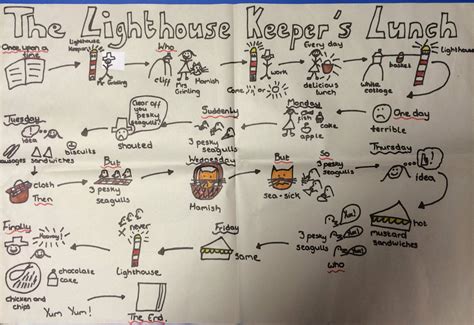 The Lighthouse Keeper's Lunch
Once upon a time
Lighthouse Keeper
Mr. Grinling
Who
cliff
Mrs Grinling
Hamish
Lighthouse
work
Cane or
Every day
delicious lunch
white cottage
basket
Lighthouse
One day
terrible
Monday
fish
cake
apple
Suddenly
3 pesky seagulls
Clear off you pesky seagulls!
shouted
Tuesday
idea
biscuits
sausages
sandwiches
cloth
Then
But
3 pesky seagulls
Wednesday
Hamish
But
sea-sick
So
3 pesky seagulls
Thursday
idea
hot
mustard sandwiches
Yum!
Yum!
3 pesky seagulls
who
Friday
same
never
Lighthouse
Finally
Hooray!
chocolate cake
Chicken and chips
Yum Yum!
The End.